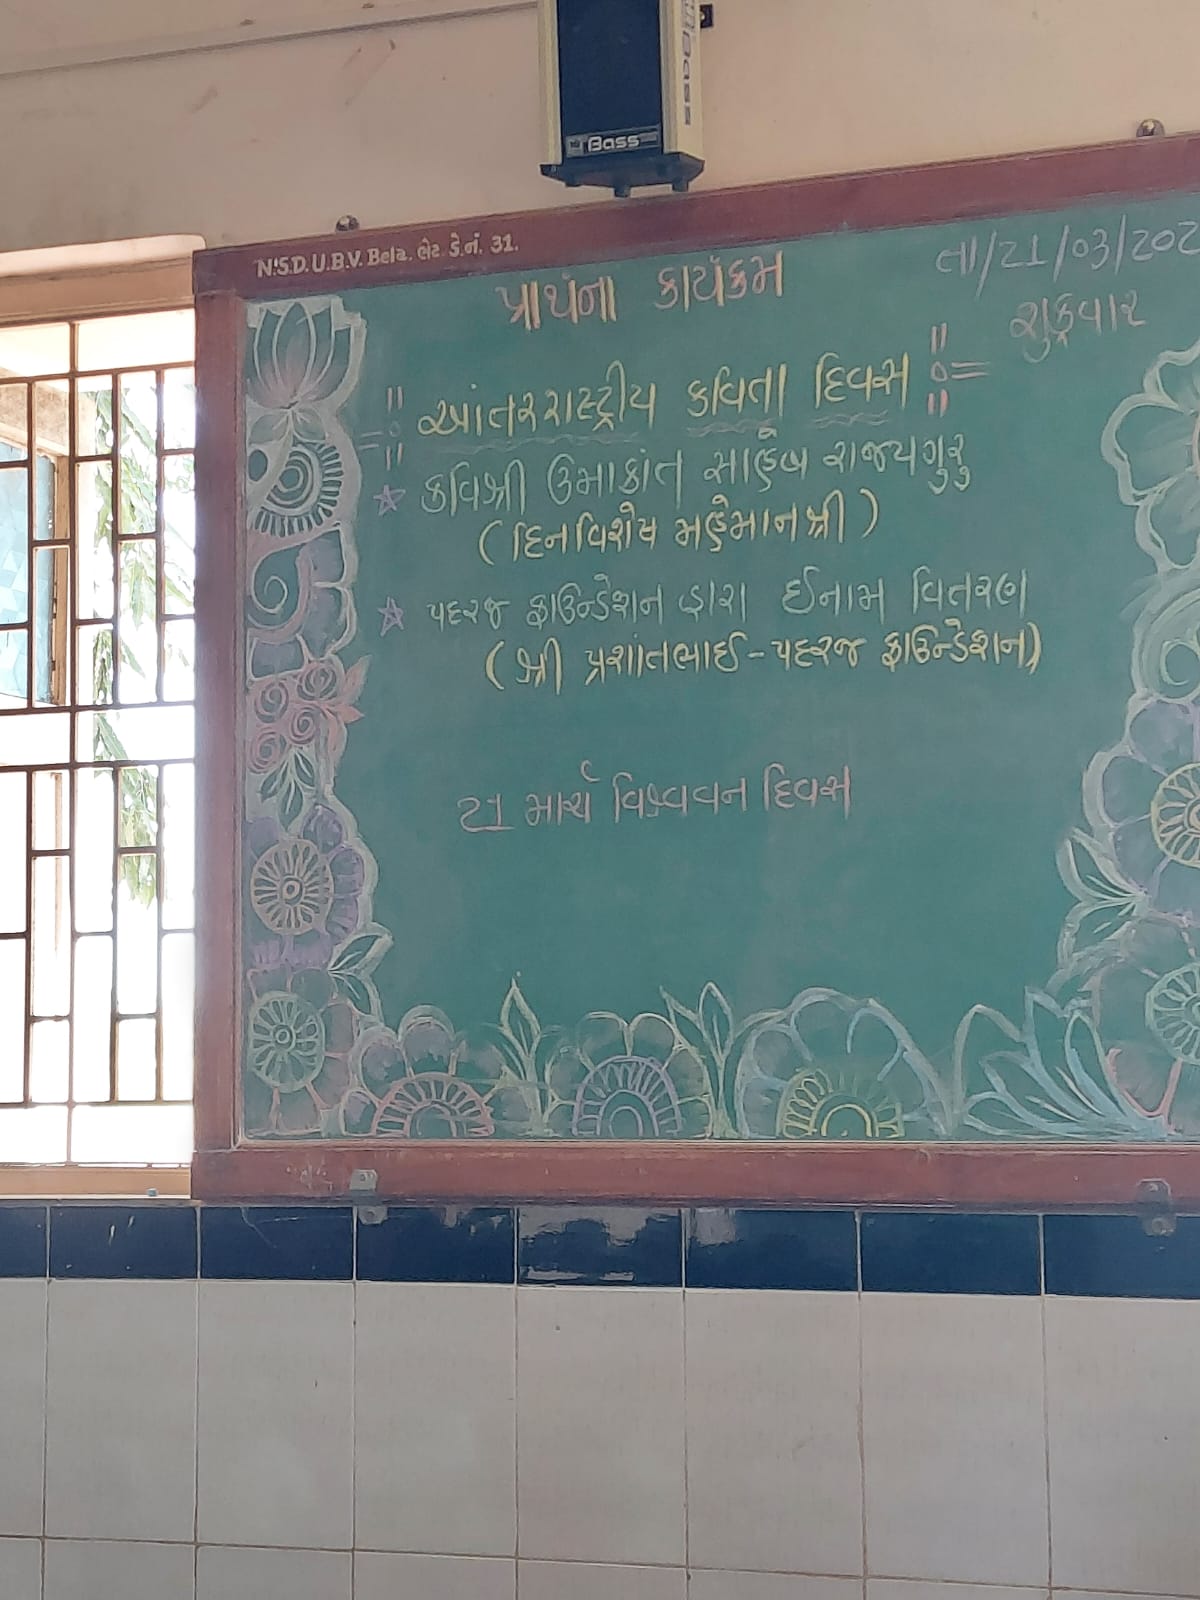 Bass
Bass
N.S.D.U.B.V. Bela. ભેટ ડે.નં. 31.
તા/21/03/202
પ્રાર્થના કાર્યક્રમ
શુક્રવાર
આંતરરાષ્ટ્રીય કવિતા દિવસ
☆ કવિશ્રી ઉમાકાંત સાહેબ રાજ્યગુરુ
(દિનવિશેષ મહેમાનશ્રી)
☆ પદરજ ફાઉન્ડેશન દ્વારા ઈનામ વિતરણ
(શ્રી પ્રશાંતભાઈ - પદરજ ફાઉન્ડેશન)
21 માર્ચ વિશ્વવન દિવસ